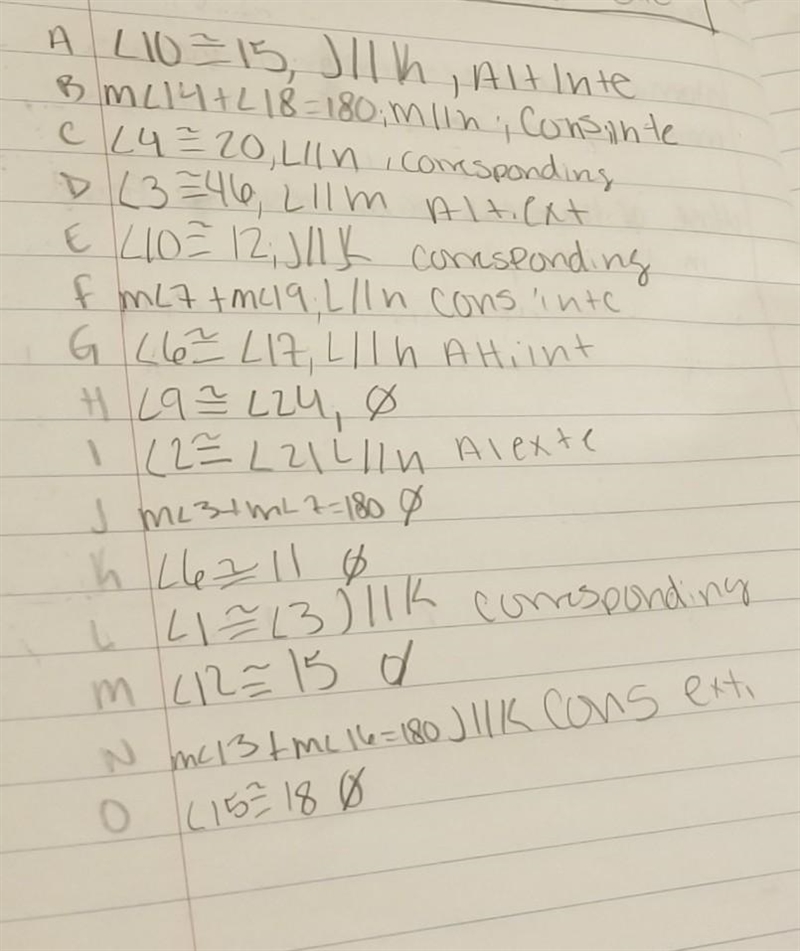 A ∠10≅15, J||k, Alt Inte
B m∠14+∠18=180, m||n, Cons, inte
C ∠4≅20, L||n, corresponding
D ∠3≅46, L||m Alt. Ext
E ∠10≅12, J||k corresponding
F m∠7+m∠19, L||n cons inte
G ∠6≅∠17, L||n Alt, int
H ∠9≅∠24, Ø
I ∠2≅∠21 L||n Al exte
J m∠3+m∠7=180 Ø
K ∠6≅11 Ø
L ∠1≅∠3 J||K corresponding
M ∠12≅15 Ø
N m∠13+m∠16=180 J||K Cons ext.
O ∠15≅18 Ø